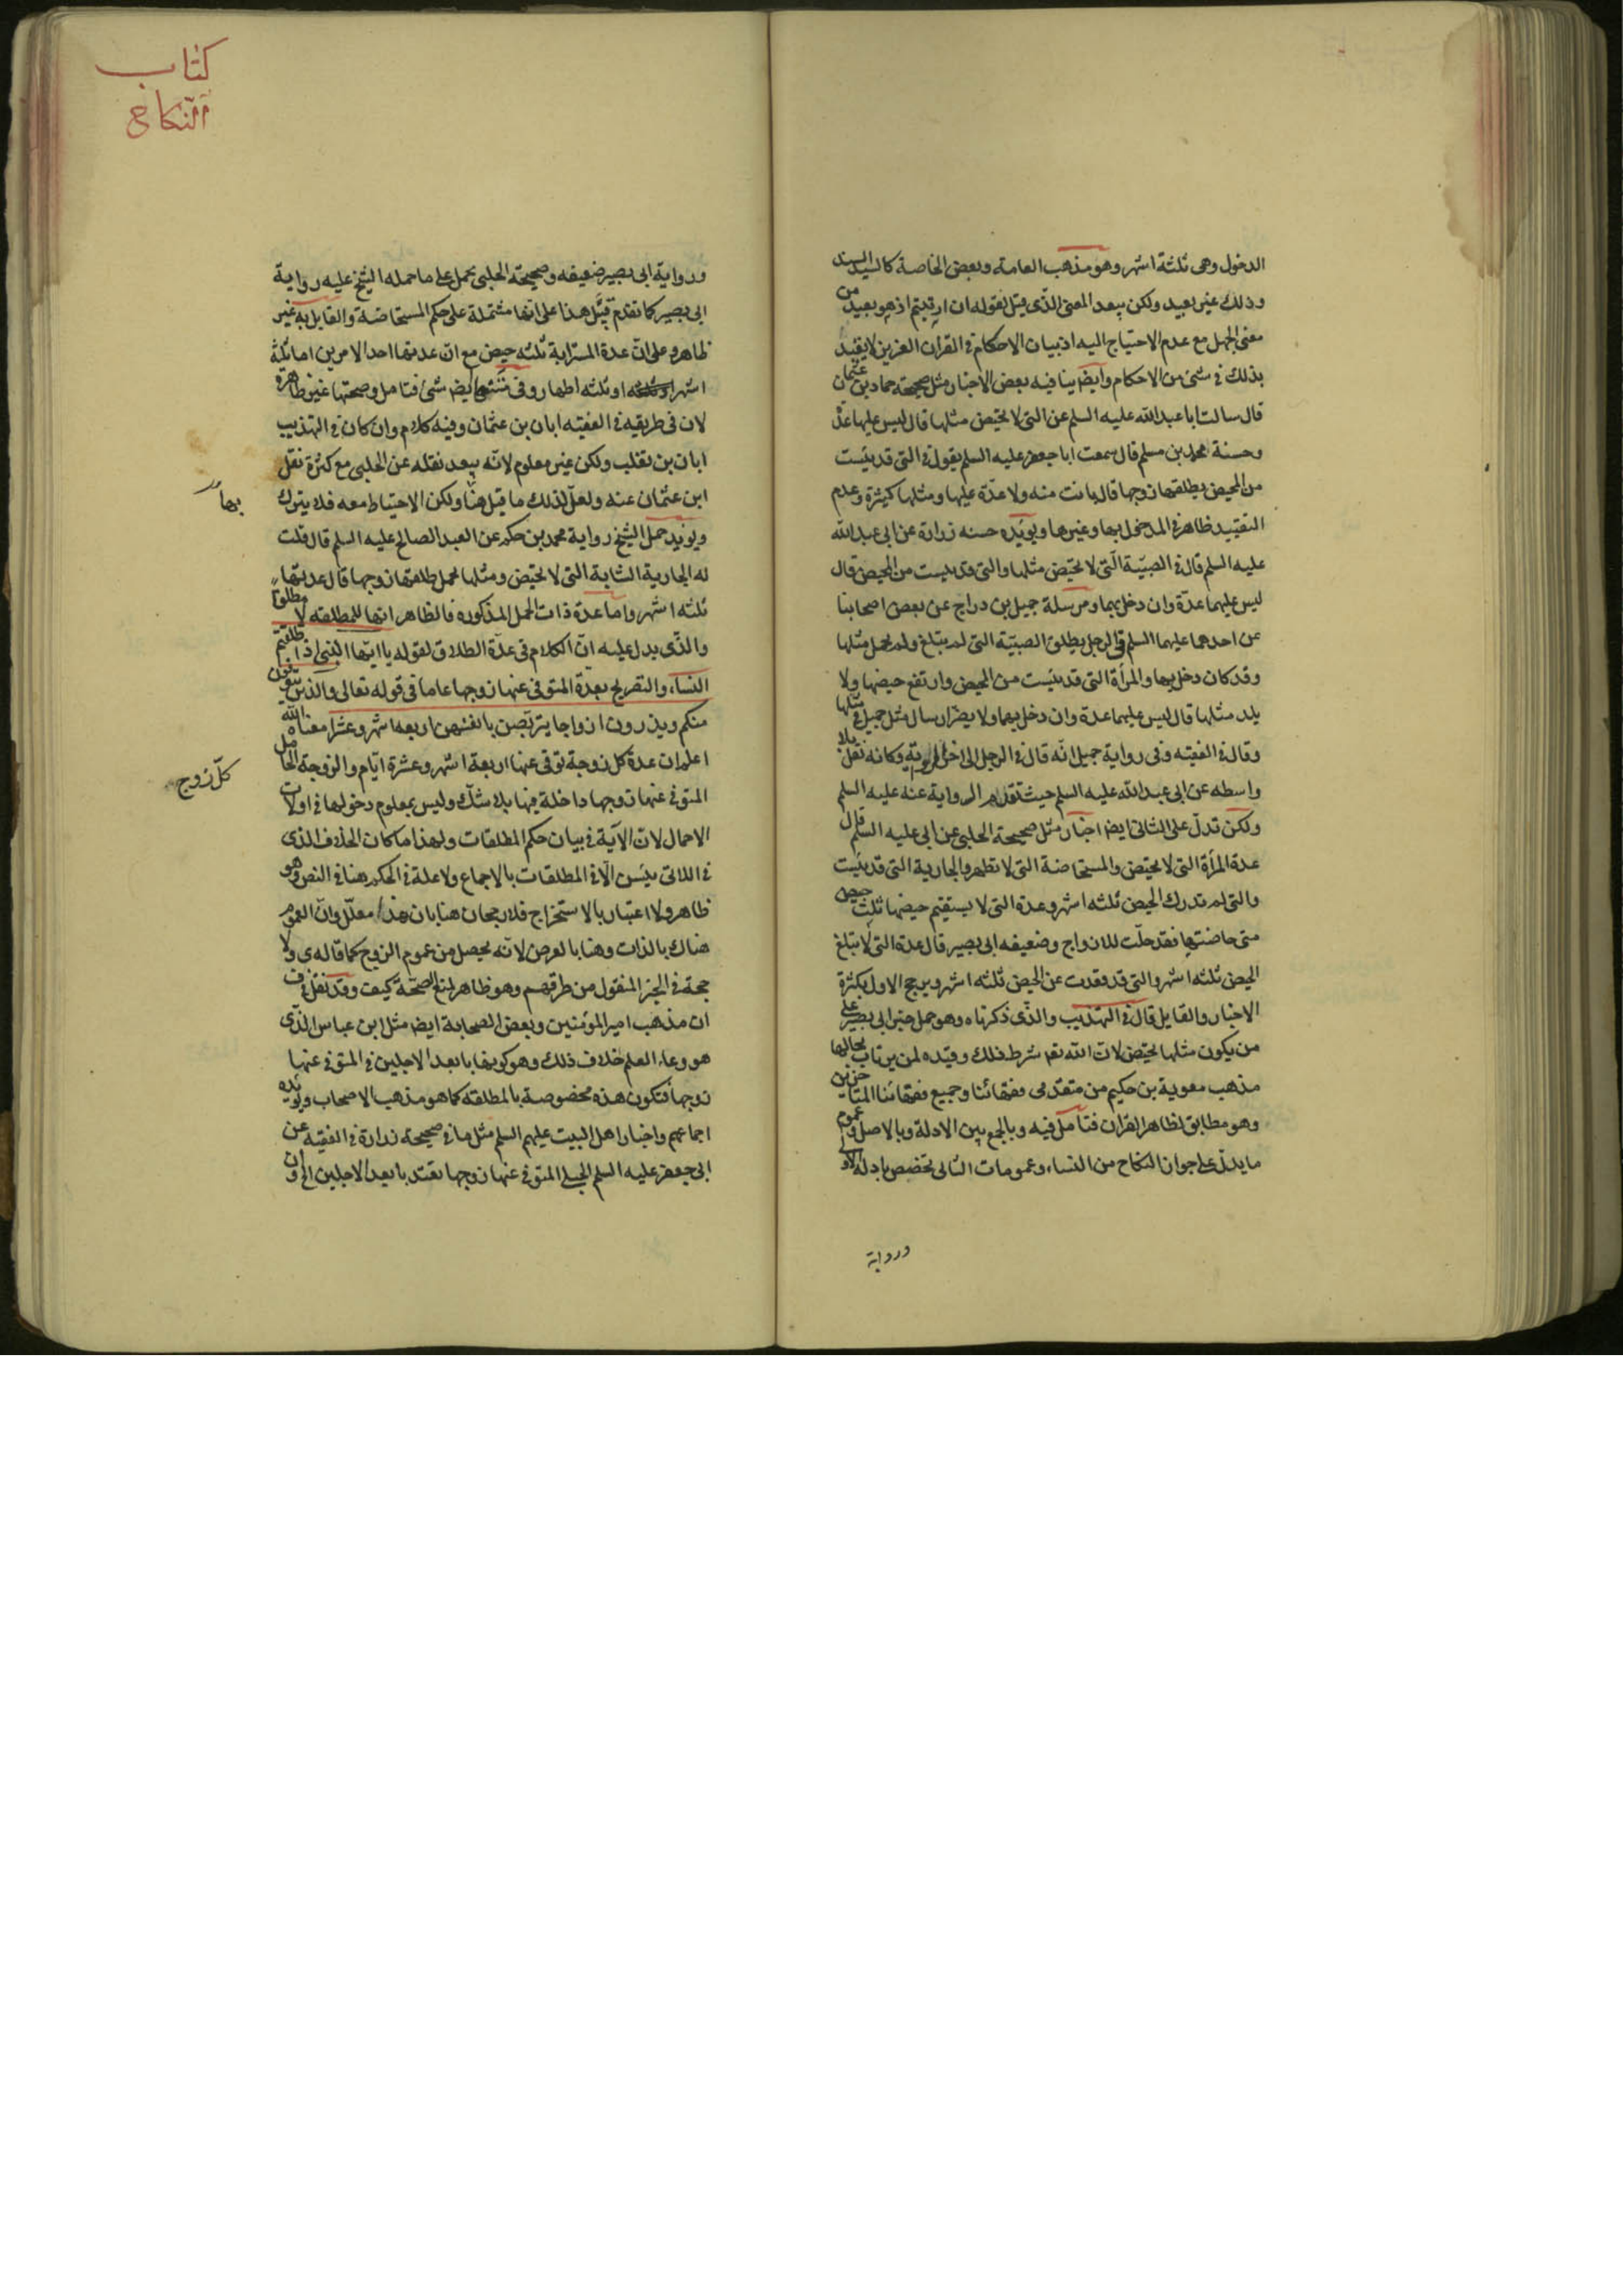 الدخول وهى ثلثة اشهر وهو مذهب العامة وبعض الخاصة كالسيد السند
وذلك غير بعيد ولكن يبعد المعنى الذى قيل لقوله ان ارتبتم اذ هو بعيد من
معنى الجهل مع عدم الاحتياج اليه اذ بيان الاحكام فى القران العزيز لا يقيد
بذلك فى شئ من الاحكام وايضا ينافيه بعض الاخبار مثل صحيحة حماد بن عثمان
قال سالت ابا عبد الله عليه السلم عن التى لا تحيض مثلها قال ليس عليها عدة
وحسنة محمد بن مسلم قال سمعت ابا جعفر عليه السلم يقول فى التى قد يئست
من المحيض يطلقها زوجها قال بانت منه ولا عدة عليها ومثلها كثيرة وعدم
التقييد ظاهر فى المدخول بها وغيرها ويؤيده حسنه زرارة عن ابى عبد الله
عليه السلم قال فى الصبيّة التى لا تحيض مثلها والتى قد يئست من المحيض قال
ليس عليهما عدّة وان دخل بهما ومرسلة جميل بن دراج عن بعض اصحابنا
عن احدهما عليهما السلم فى الرجل يطلق الصبيّة التى لم تبلغ ولم تحمل مثلها
وقد كان دخل بها والمرأة التى قد يئست من المحيض وارتفع حيضها ولا
يلد مثلها قال ليس عليهما عدة وان دخل بهما ولا يضر ارسال مثل جميل فى مثلها
وقال فى الفقيه وفى رواية جميل انّه قال فى الرجل الى اخر وكانه نقل بلا
واسطه عن ابى عبد الله عليه السلم حيث تقدم الرواية عنه عليه السلم
ولكن تدلّ على الثانى ايضا اخبار مثل صحيحة الحلبى عن ابى عليه السلم قال
عدة المرأة التى لا تحيض والمستحاضة التى لا تطهر والجارية التى قد يئست
والتى لم تدرك الحيض ثلثه اشهر وعدة التى لا يستقيم حيضها ثلث حيض
متى حاضتها فقد حلّت للازواج وضعيفه ابى بصير قال عدة التى لا تبلغ
الحيض ثلثه اشهر والتى قد قعدت عن الحيض ثلثه اشهر ويرجح الاول بكثرة
الاخبار والقايل قال فى التهذيب والذى ذكرناه وهو حمل خبر ابى بصير على
من يكون مثلها تحيض لان الله تعه شرط ذلك وقيده لمن يرتاب بحالها
مذهب معوية بن حكيم من متقدمى فقهائنا وجميع فقهائنا المتاخرين
وهو مطابق لظاهر القران فتامل فيه وبالجمع بين الادلة وبالاصل وعموم
ما يدلّ على جواز النكاح من النساء وعمومات الثانى تخصص بادلة الاول
ورواية
كتاب
النكاح
ورواية ابى بصير ضعيفه وصحيحة الحلبى تحمل على ما حمله الشيخ عليه رواية
ابى بصير كما تقدم قيّل هذا على انها مشتملة على حكم المستحاضة والقايل به غير
ظاهر وعلى انّ عدة المسترابة ثلثه حيض مع ان عدتها احد الامرين اما ثلثة
اشهر او ثلثه اطهار وفى ايضا شئ فتامل وصحتها غير ظاهرة
لان فى طريقه فى الفقيه ابان بن عثمان وفيه كلام وان كان فى التهذيب
ابان بن تغلب ولكن غير معلوم لانّه يبعد نقله عن الحلبى مع كثرة نقل
ابن عثمان عنه ولعلّ لذلك ما قيل هنا ولكن الاحتياط معه فلا يترك
ويؤيد حمل الشيخ رواية محمد بن حكيم عن العبد الصالح عليه السلم قال قلت
له الجارية الشابة التى لا تحيض ومثلها تحمل طلقها زوجها قال عدتها
ثلثه اشهر واما عدة ذات الحمل المذكوره فالظاهر انها للمطلقه لا مطلقا
والذّى يدل عليه انّ الكلام فى عدة الطلاق لقوله يا ايّها النبى اذا طلقتم
النساء والتصريح بعدة المتوفى عنها زوجها عاما فى قوله تعالى والذين يتوفون
منكم ويذرون ازواجا يتربّصن بانفسهن اربعه اشهر وعشرا معناه الله
اعلم ان عدة كل زوجة توفى عنها اربعة اشهر وعشرة ايّام والزوجة الحامل
المتوفى عنها زوجها داخلة فيها بلا شكّ وليس بمعلوم دخولها فى اولات
الاحمال لانّ الآية فى بيان حكم المطلقات ولهذا ما كان الخلاف الذى
فى اللائى يئسن الّا فى المطلقات بالاجماع ولا علة فى الحكم هنا فى النص وهو
ظاهر ولا اعتبار بالاستخراج فلا رجحان هنا بان هذا معلّل وانّ العموم
هناك بالذات وهنا بالعرض لانّه يحصل من عموم الزوج كما قاله ى ولا
حجة فى الخبر المنقول من طرقهم وهو ظاهر لمنع الصحّة كيف وقد نقل فى ف
ان مذهب امير المؤمنين وبعض الصحابة ايضا مثل ابن عباس الذّى
هو وعاء العلم خلاف ذلك وهو كونها بابعد الاجلين فى المتوفى عنها
زوجها فتكون هذه مخصوصة بالمطلقه كما هو مذهب الاصحاب ويؤيده
اجماعهم واخبار اهل البيت عليهم السلم مثل ما فى صحيحه زرارة فى الفقيه عن
ابى جعفر عليه السلم الحبلى المتوفى عنها زوجها تعتد بابعد الاجلين الى وان
بها
كلّ زوج